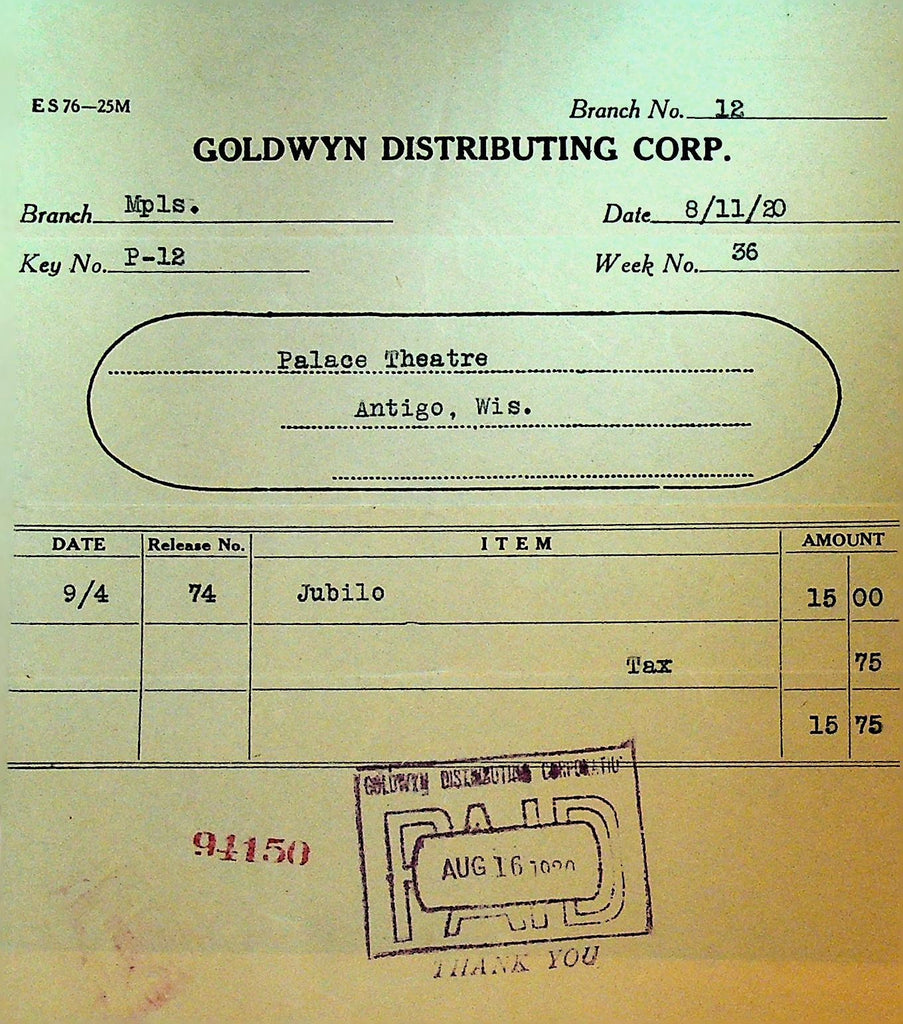 ES 76—25M
Branch No. 12
GOLDWYN DISTRIBUTING CORP.
Branch Mpls. Date 8/11/20
Key No. P-12 Week No. 36
Palace Theatre
Antigo, Wis.
DATE Release No. ITEM AMOUNT
9/4 74 Jubilo 15 00
Tax 75
15 75
GOLDWYN DISTRIBUTING CORPORATIO
PAID
AUG 16 1920
94150
THANK YOU